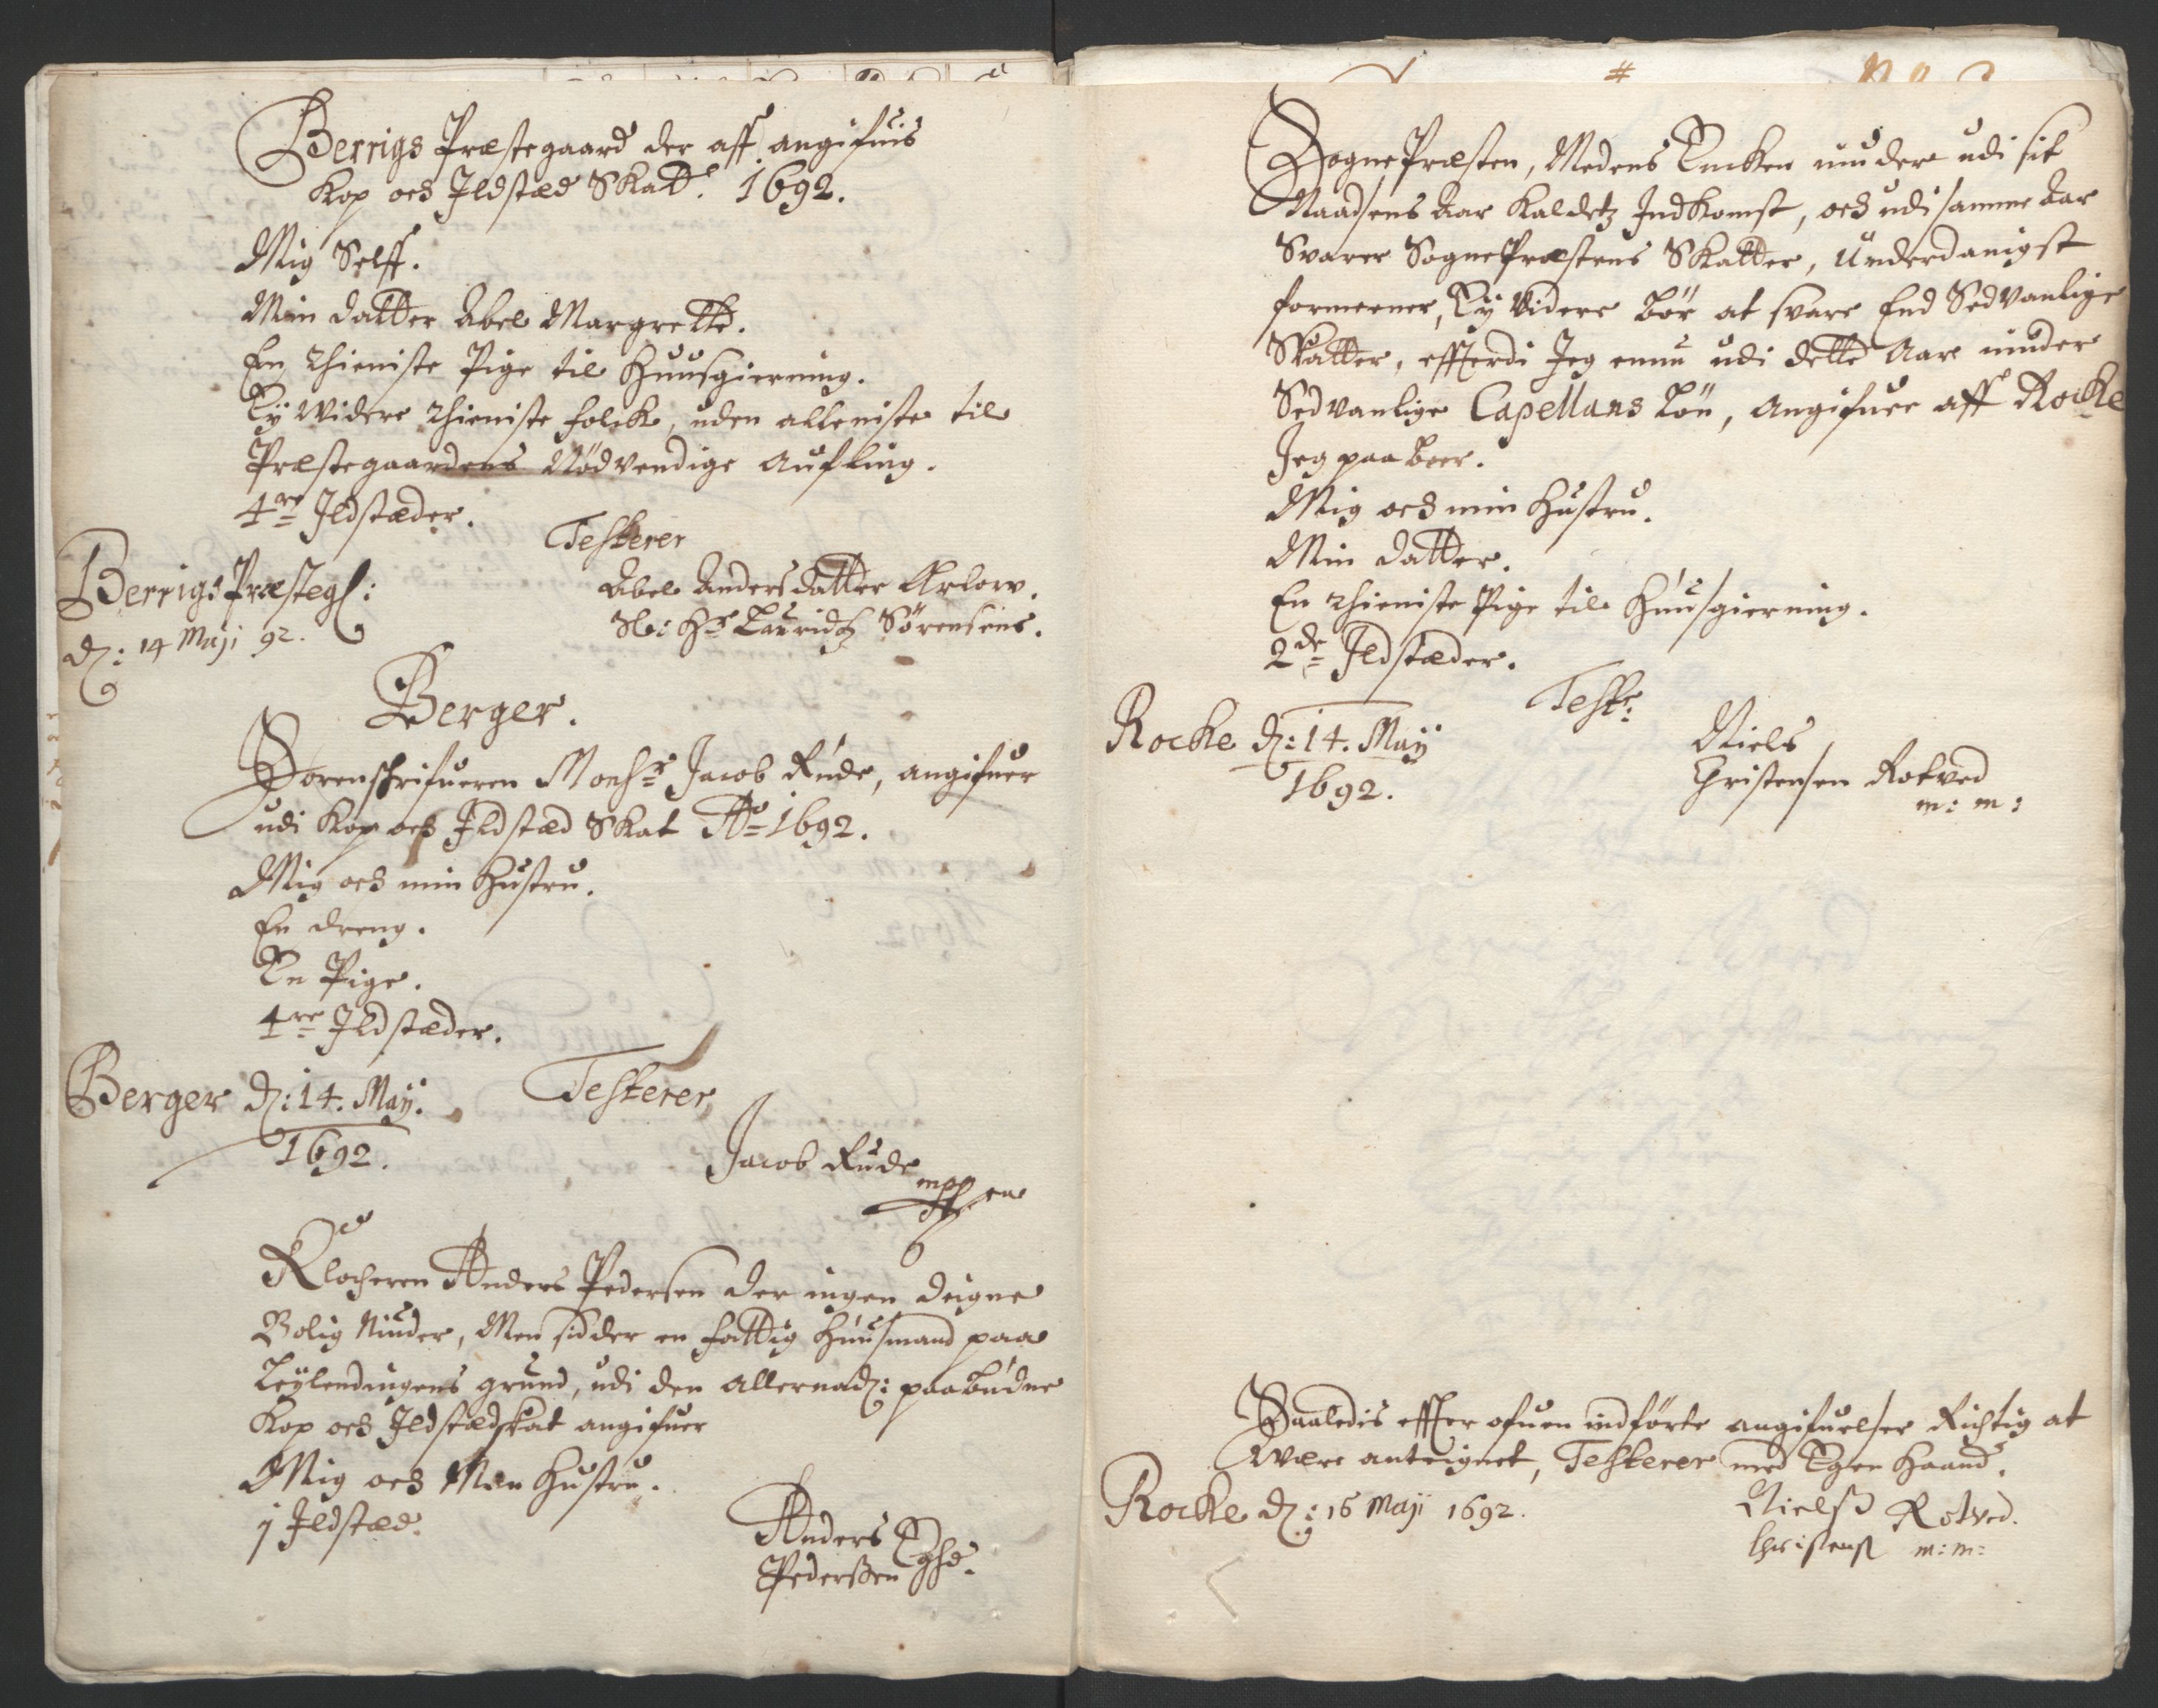 Berrigs Præstegaard der aff angifuis
Kop och Ildstæd Skatt. 1692.
Mig Self.
Min datter Abel Margrette.
En thieniste Pige til Huusgierning.
Ey widere thieniste folck, uden alleniste til
Præstegaardens Nödvendige Aufling.
4re Ildstæder.
Testerer
Berrigs Præsteg:
d: 14 Maji 92.
Abel Andersdatter Arlow.
Sl: Hr Lauridtz Sörensens.
Berger.
Sorenschrifueren Monsr Jacob Rude, angifuer
udi Kop och Ildstæd Skat Ao 1692.
Mig och min Hustru.
En dreng.
En Pige.
4re Ildstæder.
Berger d: 14. Maij.
1692.
Testerer
Jacob Rude
mppria
Klocheren Anders Pedersen der ingen deigne
Bolig Niuder, Men sidder en fattig Huusmand paa
Leylendingens grund, udi den allernad: paabudne
Kop och Ildstædskat angifuer
Mig och Min Hustru.
1 Ildstæd.
Anders
Pederssen Eghd.
SognePræsten, Medens Encken niuder udi sit
Naadsens Aar Kaldetz Indkomst, och udi samme Aar
Svarer SognePræstens Skatter, Underdanigst
formeener, Ey Videre bör at svare End Sedvanlige
Skatter, efftterdi Jeg ennu udi dette Aar niuder
Sedvanlige Capellans Lön, Angifuer aff Rocke
Jeg paa boer.
Mig och min Hustru.
Min datter.
En thieniste Pige til Huusgierning.
2de Ildstæder.
Testr:
Rocke d: 14. Maij
1692.
Niels
Christensen Rotved
m: m:
Saaledis effter ofuen indförte angifuelser Richtig at
Være anteignet, Testerer med Egen Haand.
Rocke d: 16 Maji 1692.
Nielss Rotved.
Christens m: m: